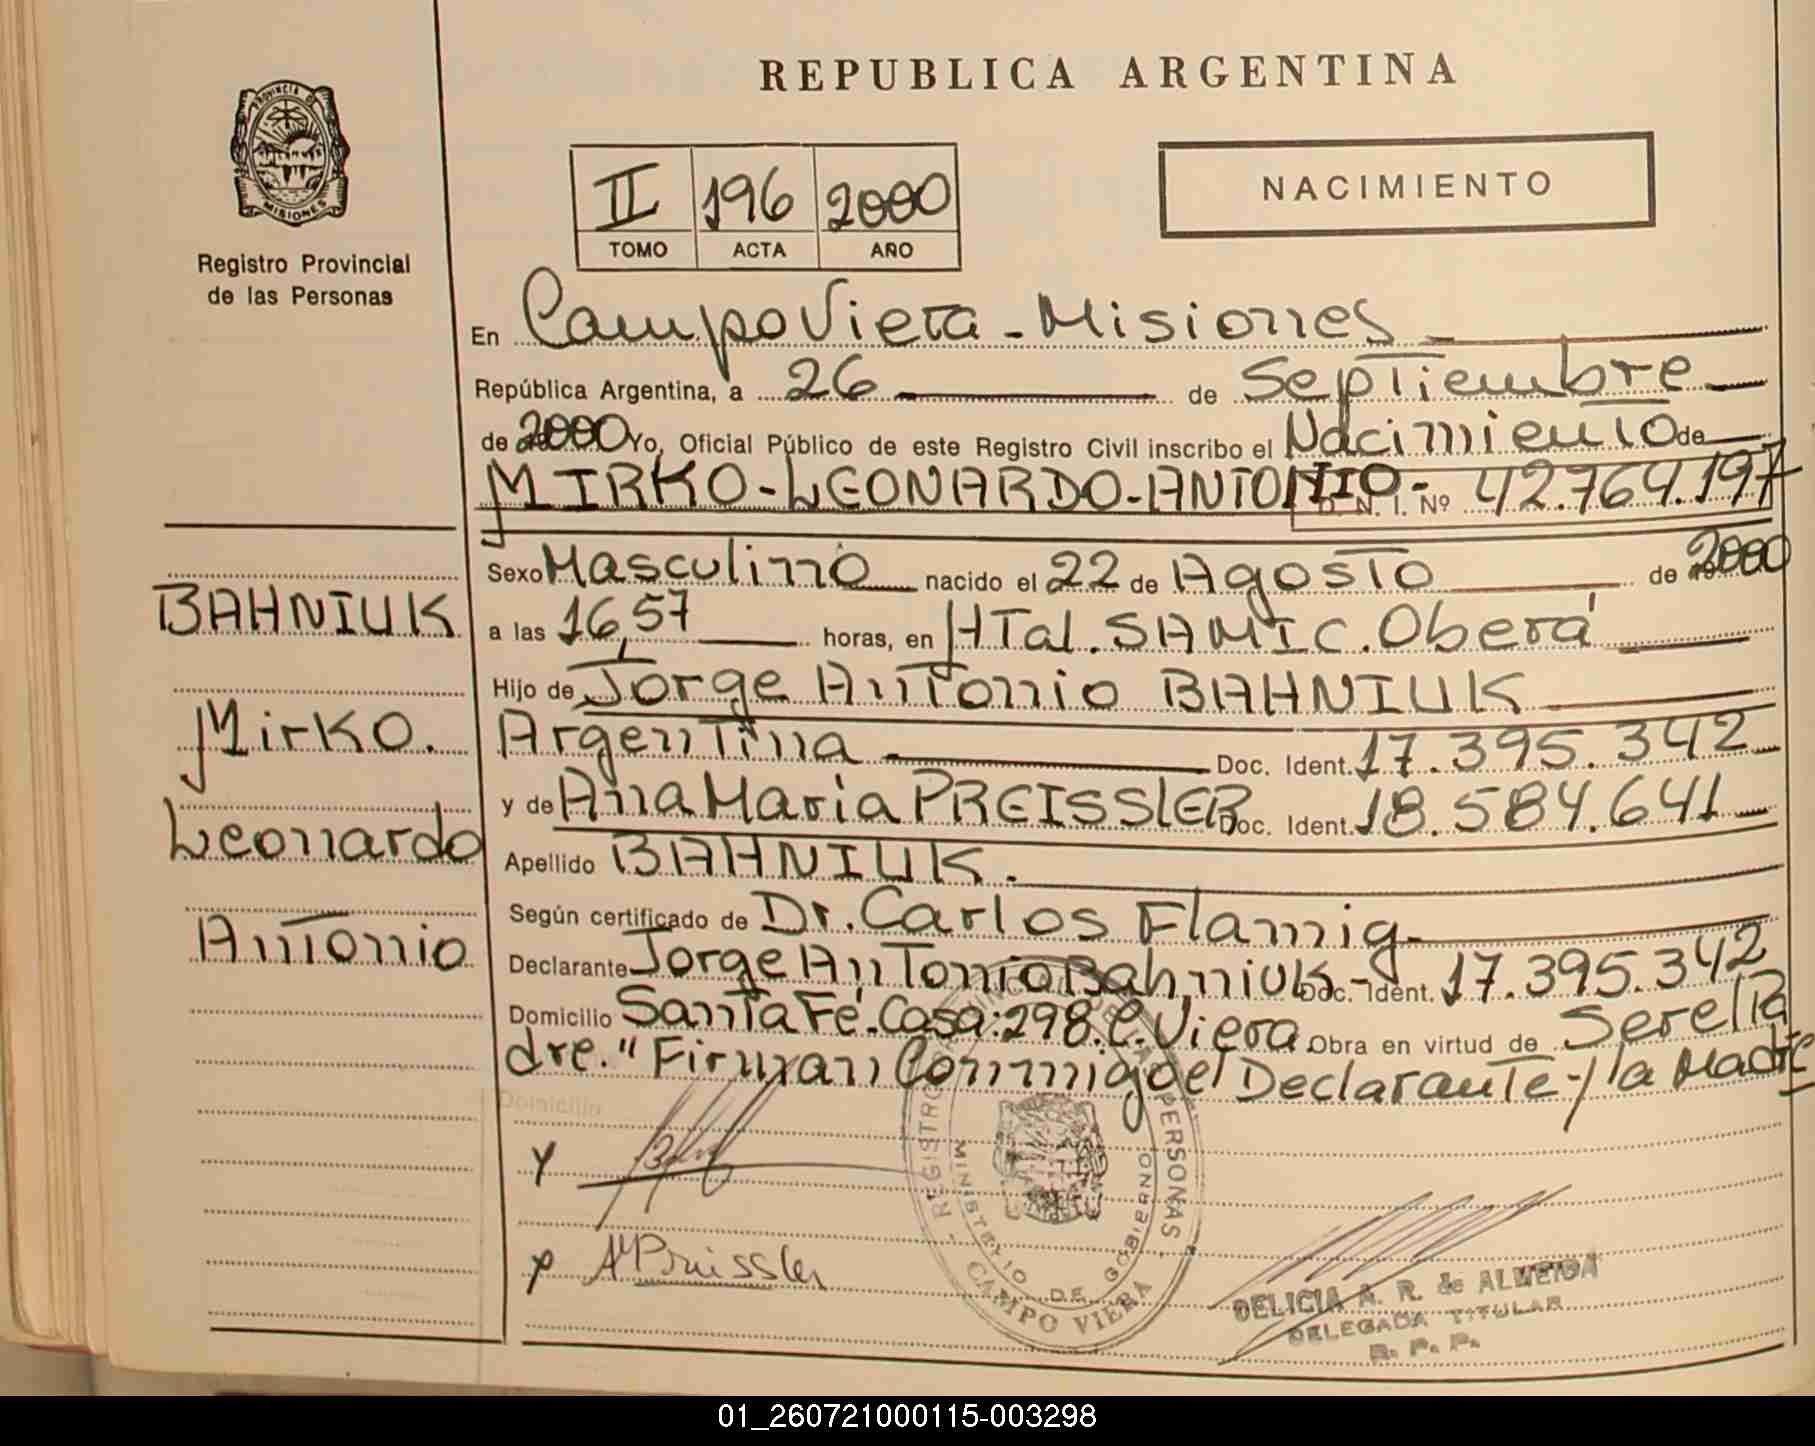 REPUBLICA ARGENTINA
PROVINCIA DE
MISIONES
Registro Provincial
de las Personas
II 196 2000
TOMO ACTA AÑO
NACIMIENTO
En Campo Viera - Misiones
República Argentina, a 26 de Septiembre
de 2000 Yo, Oficial Público de este Registro Civil inscribo el Nacimiento de
MIRKO-LEONARDO-ANTONIO- D. N. I. Nº 42.764.197
Sexo Masculino nacido el 22 de Agosto de 2000
a las 16,57 horas, en HTal. SAMIC. Oberá
Hijo de Jorge Antonio BAHNIUK
Argentina Doc. Ident. 17.395.342
y de Ana Maria PREISSLER Doc. Ident. 18.584.641
Apellido BAHNIUK.
Según certificado de Dr. Carlos Flamig-
Declarante Jorge Antonio Bahniuk- Doc. Ident. 17.395.342
Domicilio Santa Fé-Casa:298.C.Viera Obra en virtud de Ser el Pa
dre." Firman Conmigo el Declarante y la Madre
BAHNIUK
Mirko.
Leonardo
Antonio
Domicilio
REGISTRO PROVINCIAL DE LAS PERSONAS
MINISTERIO DE GOBIERNO
- CAMPO VIERA -
A Preissler
DELICIA A. R. de ALMEIDA
DELEGADA TITULAR
R. P. P.
01_260721000115-003298